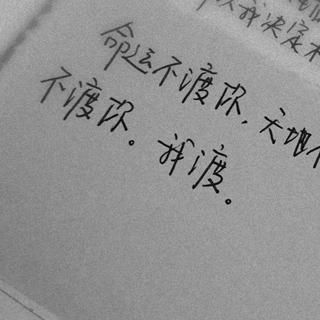 我决定
命运不渡你，天地
不渡你。我渡。